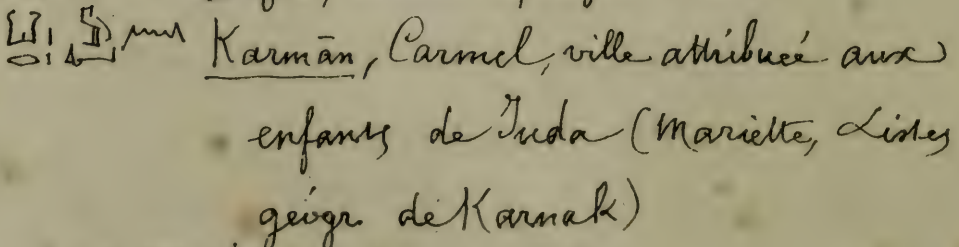 Karmān, Carmel, ville attribuée aux
enfants de Juda (Mariette, Listes
géogr. de Karnak)